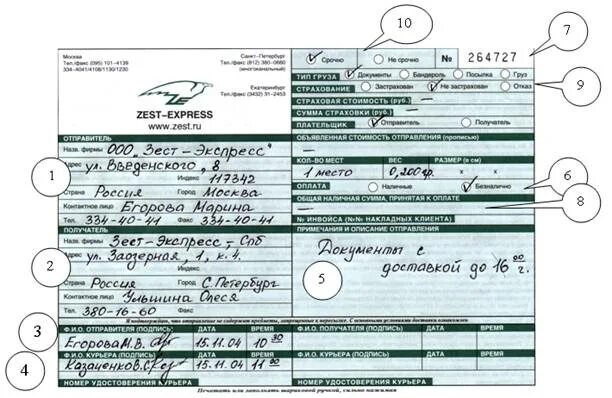 10
7
Москва
Тел./факс (095) 101-4139
334-4041/4108/1130/1230
Санкт-Петербург
Тел./факс (812) 380-0660
(многоканальный)
Екатеринбург
Тел./факс (3432) 31-2453
ZEST-EXPRESS
www.zest.ru
Срочно Не срочно № 264727
ТИП ГРУЗА Документы Бандероль Посылка Груз
СТРАХОВАНИЕ Застрахован Не застрахован Отказ
9
СТРАХОВАЯ СТОИМОСТЬ (руб.) —
СУММА СТРАХОВКИ (руб.) —
ПЛАТЕЛЬЩИК Отправитель Получатель
ОБЪЯВЛЕННАЯ СТОИМОСТЬ ОТПРАВЛЕНИЯ (прописью)
—
КОЛ-ВО МЕСТ ВЕС РАЗМЕР (в см)
1 место 0,200 гр. х х
ОПЛАТА Наличные Безналично
6
ОБЩАЯ НАЛИЧНАЯ СУММА, ПРИНЯТАЯ К ОПЛАТЕ
—
8
№ ИНВОЙСА (№№ НАКЛАДНЫХ КЛИЕНТА)
ПРИМЕЧАНИЯ И ОПИСАНИЕ ОТПРАВЛЕНИЯ
Документы с
доставкой до 16 00 г.
5
ОТПРАВИТЕЛЬ
Назв. фирмы ООО "Зест-Экспресс"
Адрес ул. Введенского, 8
1
Индекс 117342
Страна Россия Город Москва
Контактное лицо Егорова Марина
Тел. 334-40-41 Факс 334-40-41
ПОЛУЧАТЕЛЬ
Назв. фирмы Зест-Экспресс-Спб
Адрес ул. Заозерная, 1, к. 4.
2
Индекс
Страна Россия Город С.Петербург
Контактное лицо Ульшина Олеся
Тел. 380-16-60 Факс
Я подтверждаю, что отправление не содержит предметы, запрещенные к пересылке. С основными условиями доставки ознакомлен
3
Ф.И.О. ОТПРАВИТЕЛЯ (ПОДПИСЬ) ДАТА ВРЕМЯ Ф.И.О. ПОЛУЧАТЕЛЯ (ПОДПИСЬ) ДАТА ВРЕМЯ
Егорова М.В. 15.11.04 10 30
4
Ф.И.О. КУРЬЕРА (ПОДПИСЬ) ДАТА ВРЕМЯ Ф.И.О. КУРЬЕРА (ПОДПИСЬ) ДАТА ВРЕМЯ
Казаченков.С 15.11.04 11 00
НОМЕР УДОСТОВЕРЕНИЯ КУРЬЕРА НОМЕР УДОСТОВЕРЕНИЯ КУРЬЕРА
Печатать или заполнять шариковой ручкой, сильно нажимая